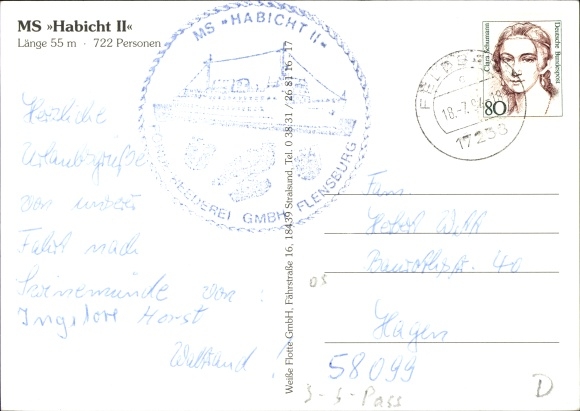 MS »Habicht II«
Länge 55 m · 722 Personen
MS »HABICHT II«
REEDEREI GMBH FLENSBURG
Clara Schumann
Deutsche Bundespost
80
18.-7.94-18
17236
Weiße Flotte GmbH, Fährstraße 16, 18439 Stralsund, Tel. 0 38 31 / 26 81 16 - 17
Herzliche
Urlaubsgrüße
von unserer
Fahrt nach
Swinemünde von:
Ingelore Horst
Waltraud!
Fam.
40
Hagen
58099
DS
3-5-Pass
D